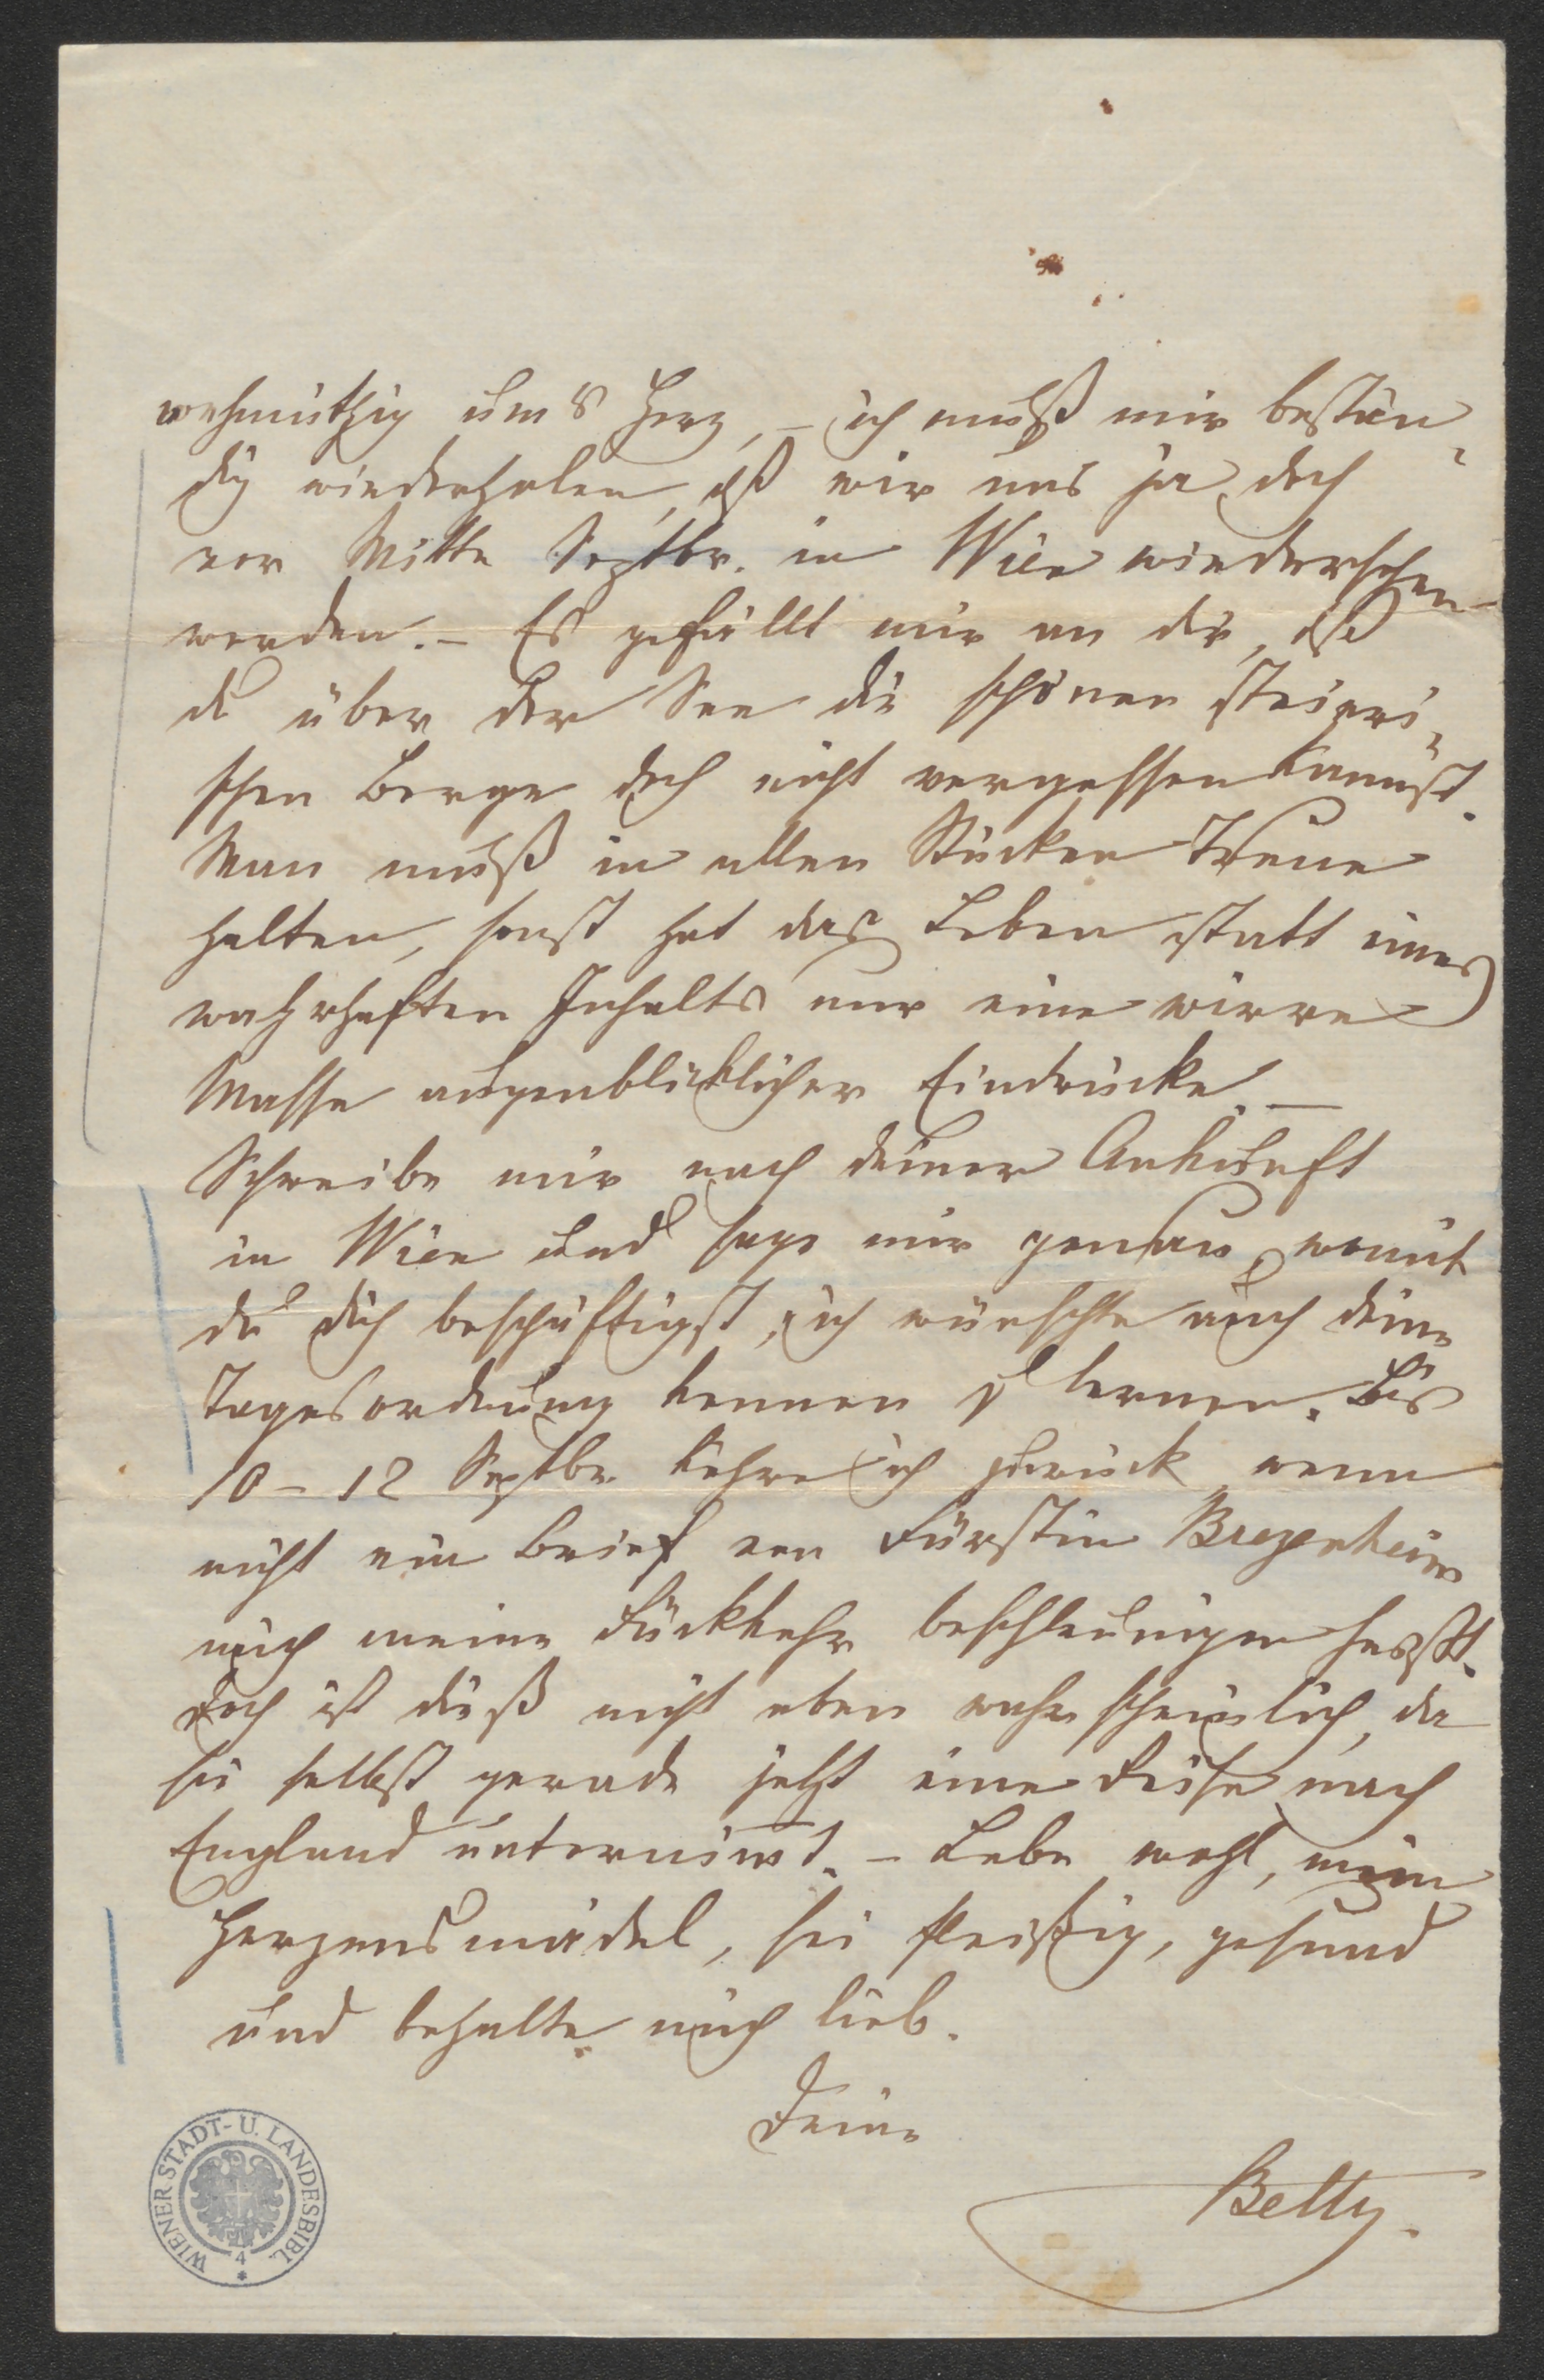 wehmüthig ums Herz, – ich muß mir bestän-
dig wiederholen, dß wir uns ja doch
vor Mitte Septbr. in Wien wiedersehen
werden. – Es gefällt mir an dir, dß
du über der See die schönen steieri-
schen Berge doch nicht vergessen kannst.
Man muß in allen Stücken Treue
halten, sonst hat das Leben statt eines
wahrhaften Inhalts nur eine wirre
Masse augenblicklicher Eindrücke. –
Schreibe mir nach deiner Ankunft
in Wien und sage mir genau, womit
du dich beschäftigst, ich wünschte auch deine
Tagesordnung kennen zu lernen. Bis
10 – 12 Septbr. kehre ich zurück, wenn
nicht ein Brief von Fürstin Brezenheim
mich meine Rückkehr beschleunigen heißt.
Doch ist dieß nicht eben wahrscheinlich, da
sie selbst gerade jetzt eine Reise nach
England unternim̅t. – Lebe wohl, mein
Herzensmädel, sei fleißig, gesund
und behalte mich lieb.
Deine
Betty.
WIENER STADT- U. LANDESBIBL.
4